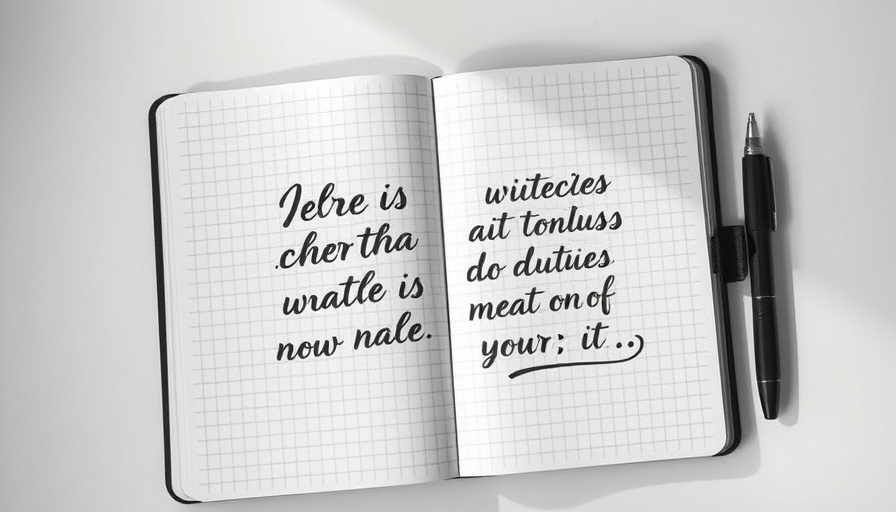 Jelre is
.cher tha
wratle is
now nale.
wiitecles
ait tonluss
do dutiies
meat on of
your; it ..